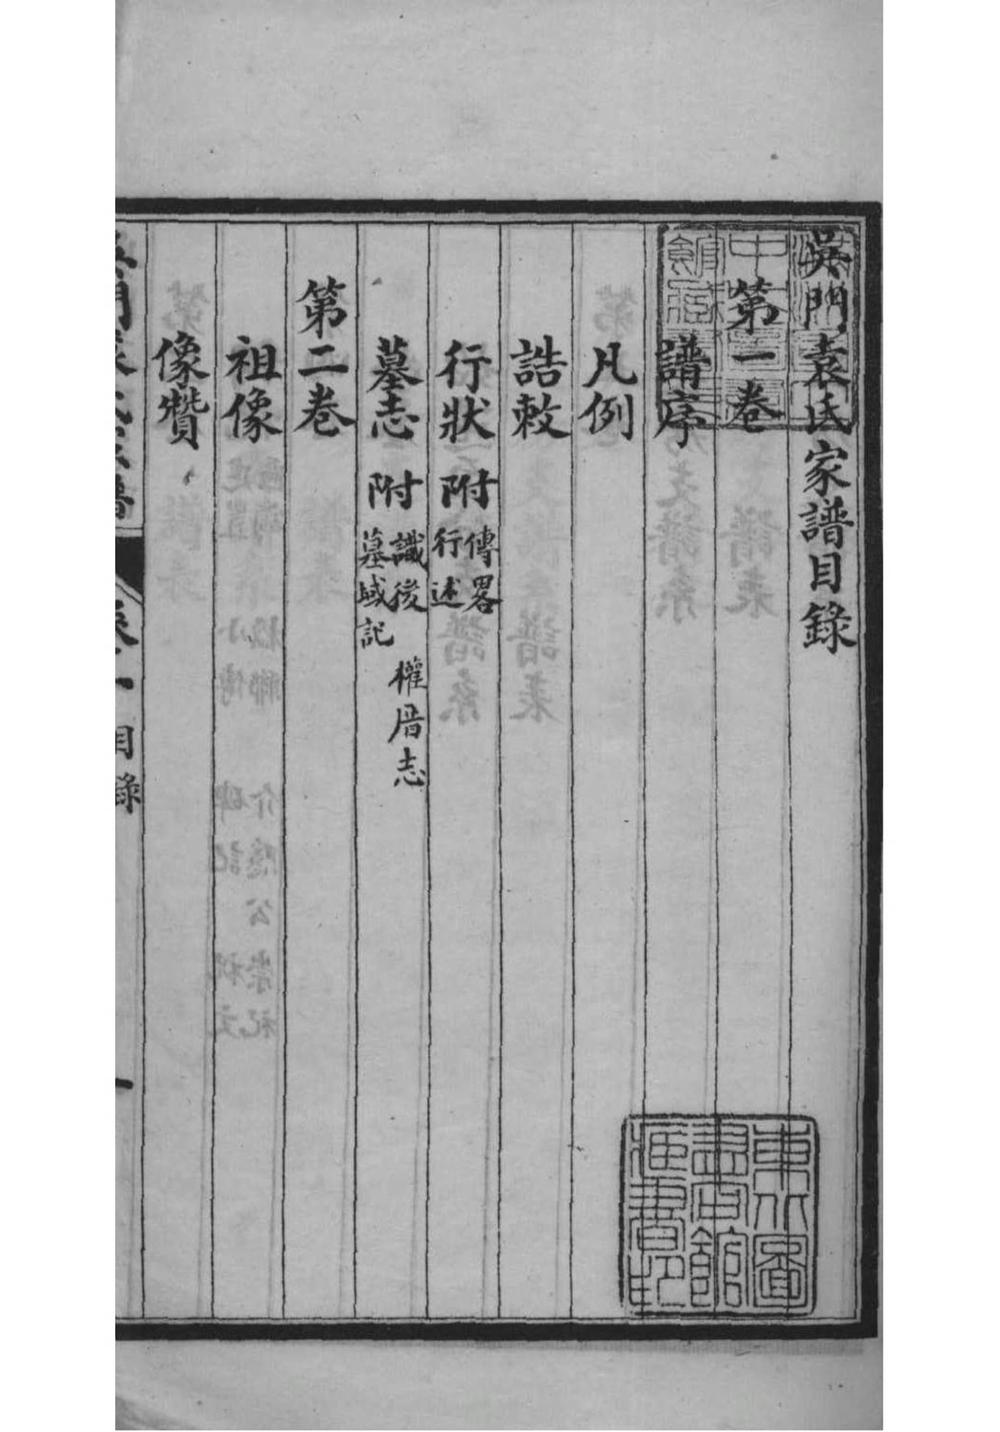 吳門袁氏家譜目錄
第一卷
譜序
凡例
誥敕
行狀 附 傳畧 行述
墓志 附 識後 權厝志 墓域記
第二卷
祖像
像贊
吳門袁氏家譜 卷一目錄 一
東北圖書館藏書印